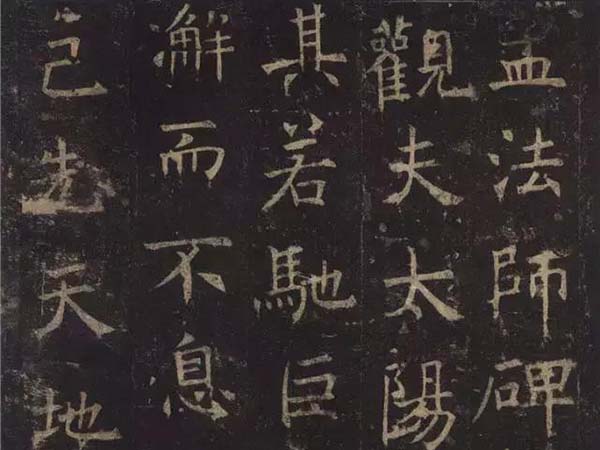 孟法師碑
觀夫太陽
其若馳巨
澥而不息
己先天地